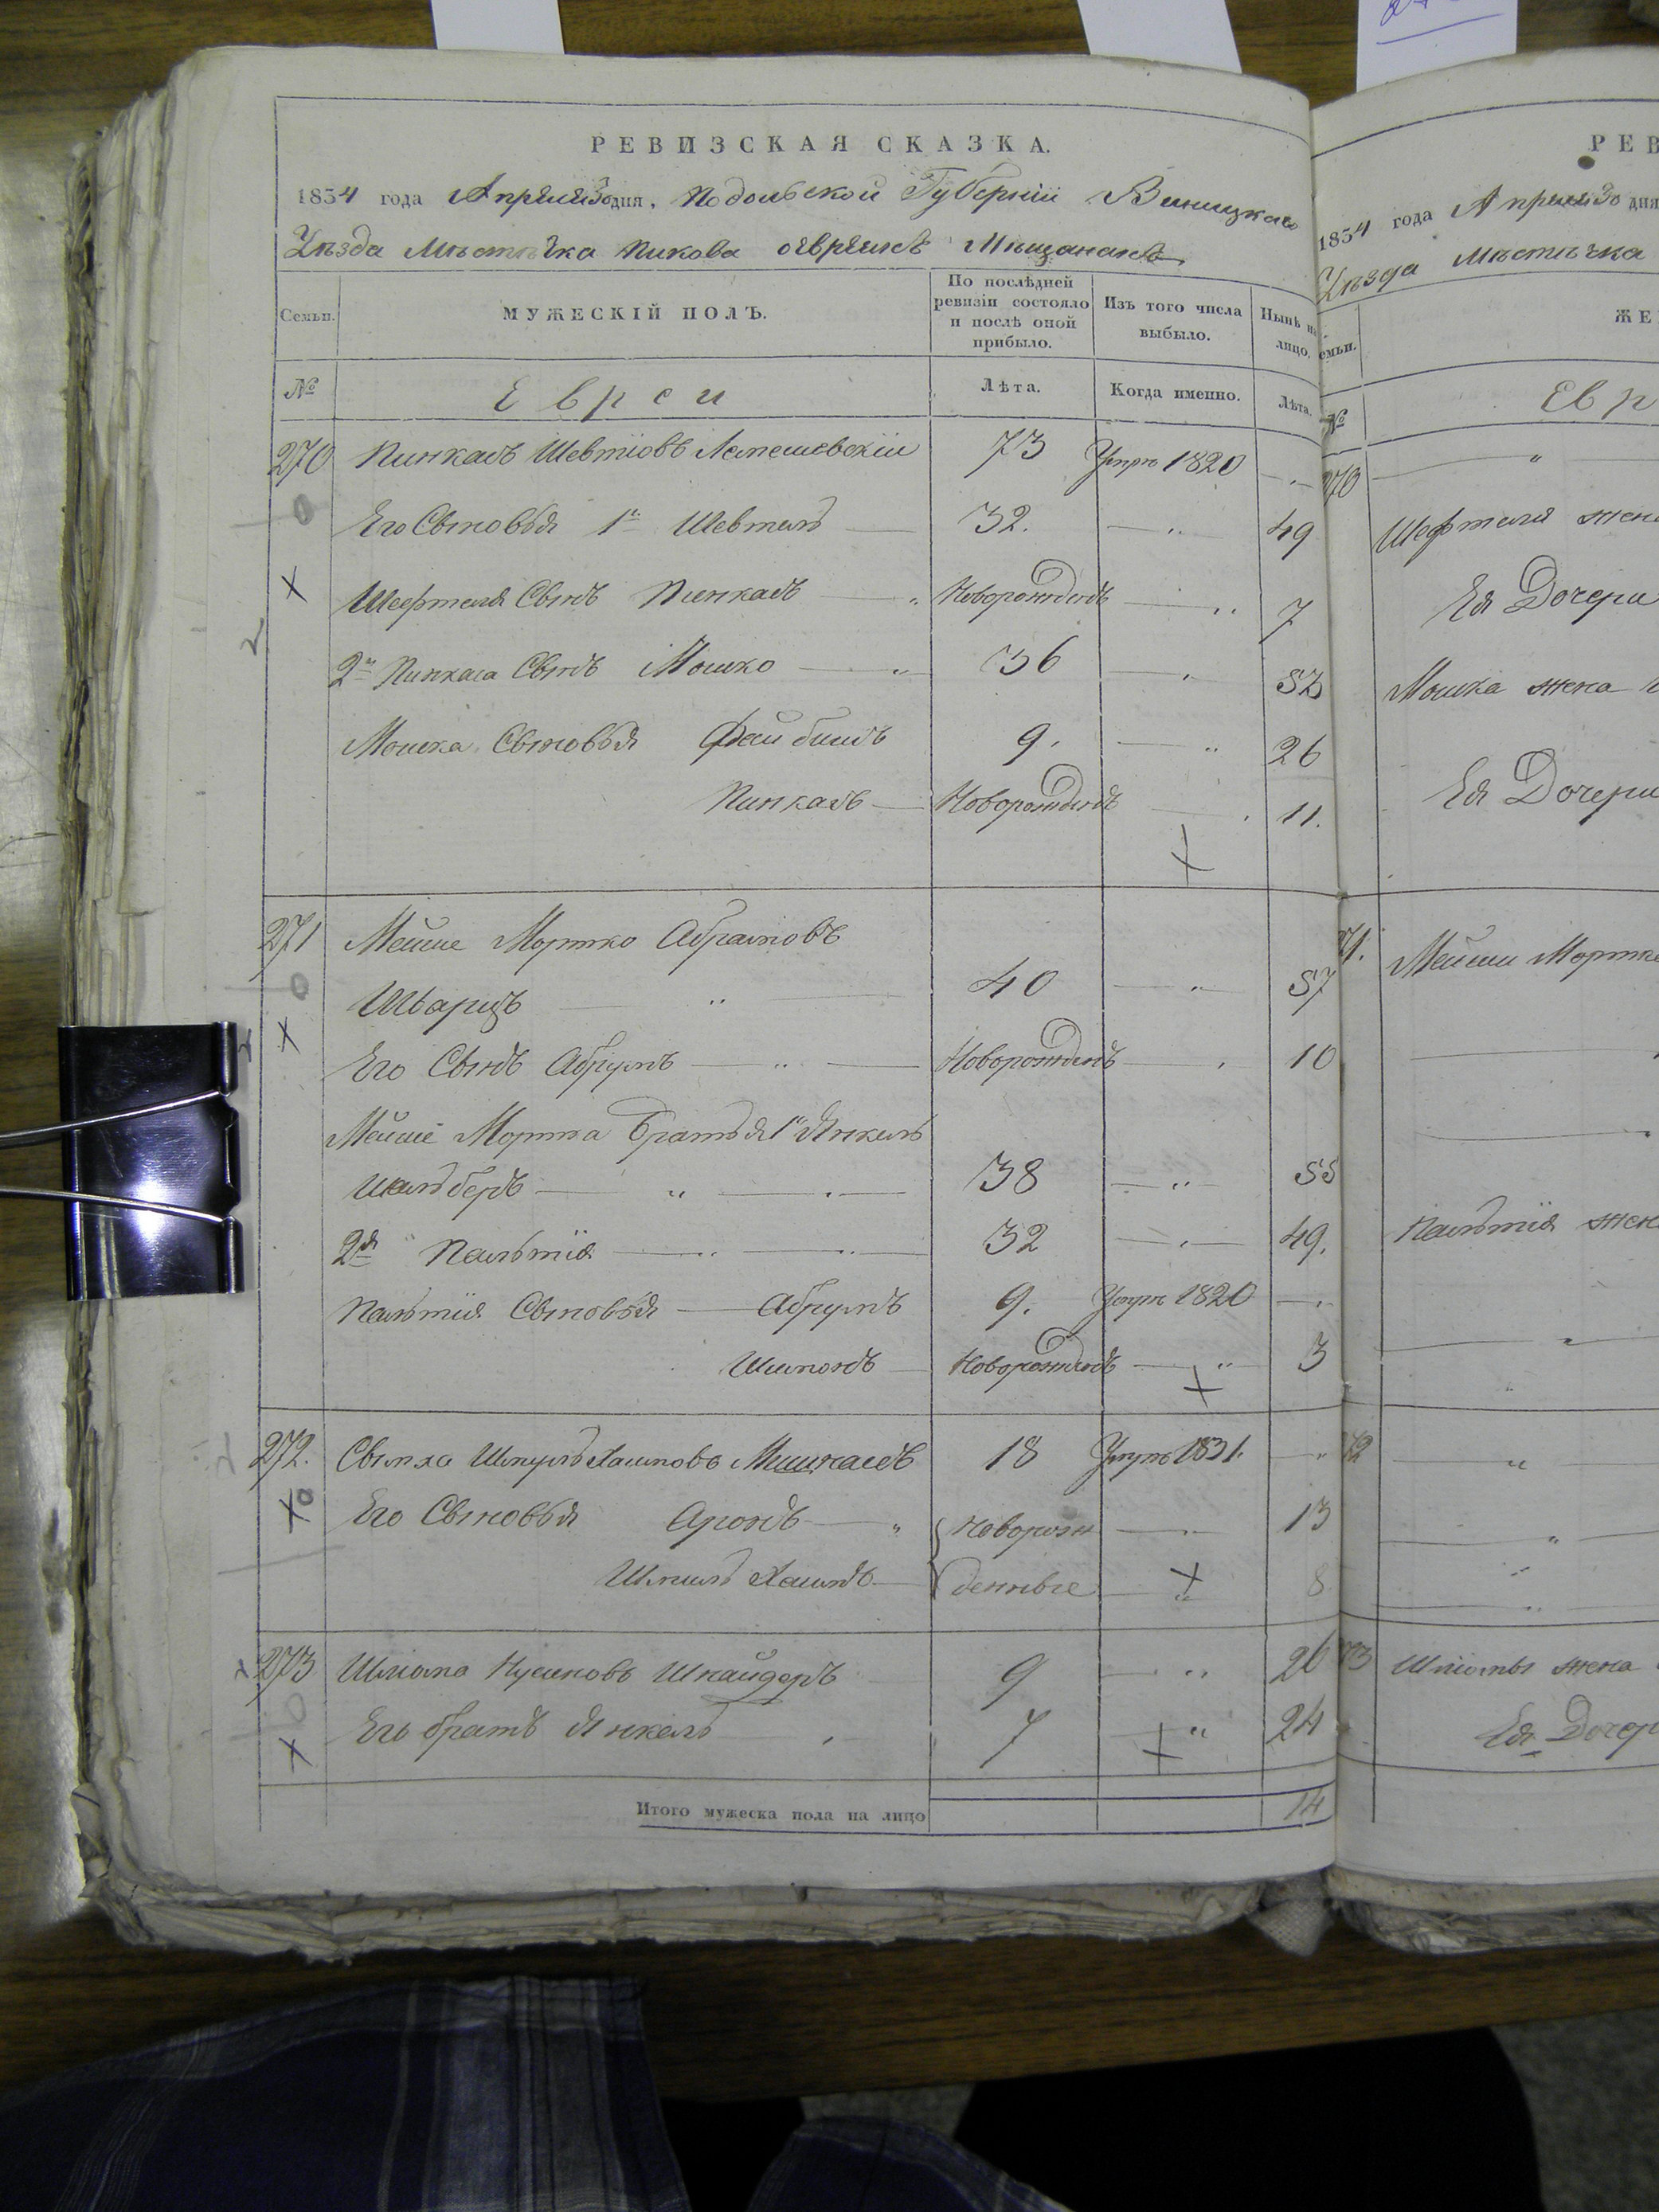 РЕВИЗСКАЯ СКАЗКА.
1834 года Апреля 30 дня, Подольской Губерніи Виницкаго
Уѣзда Мѣстѣчка Пикова оевреяхъ Мѣщанахъ
Семьи.
МУЖЕСКІЙ ПОЛЪ.
По послѣдней ревизіи состояло и послѣ оной прибыло.
Изъ того числа выбыло.
Нынѣ на лицо.
№
Евреи
Лѣта.
Когда именно.
Лѣта.
270 Пинкасъ Шевтіовъ 73 Умре 1820 —
Его Сыновья 1й Шевтель 32. — 49
Шефтеля Сынъ Пинкасъ Новорожденъ — 7
2й Пинкаса Сынъ Мошко 36 — 53
Мошка Сыновья Файбишъ 9. — 26
Пинкасъ Новорожденъ — 11.
271 Мейше Мортко Абрамовъ
Шварцъ 40 — 57
Его Сынъ Абрумъ Новорожденъ — 10
Мейше Мортка Братья 1й Янкель
38 — 55
2й Палътія 32 — 49.
Палътія Сыновья Абрумъ 9. Умре 1820 —
Шимонъ Новорожденъ — 3
272. Сымха Шмуль Хаимовъ 18 Умре 1831. —
Его Сыновья Аронъ Новорож — 13
Шмиль Хаимъ денные — 8
273 Шліома Нусиновъ Шнайдеръ 9 — 26
Его братъ Янкель 7 — 24
Итого мужеска пола на лицо 14
РЕВ
1834 года Апреля 30 дня
Уѣзда Мѣстѣчка
емьи.
ЖЕ
№
Евр
270
Шефтеля жена
Ея Дочери
Мошка жена
Ея Дочери
71. Мейши Мортко
Палътія жен
72
73 Шліомы жена
Ея Дочер